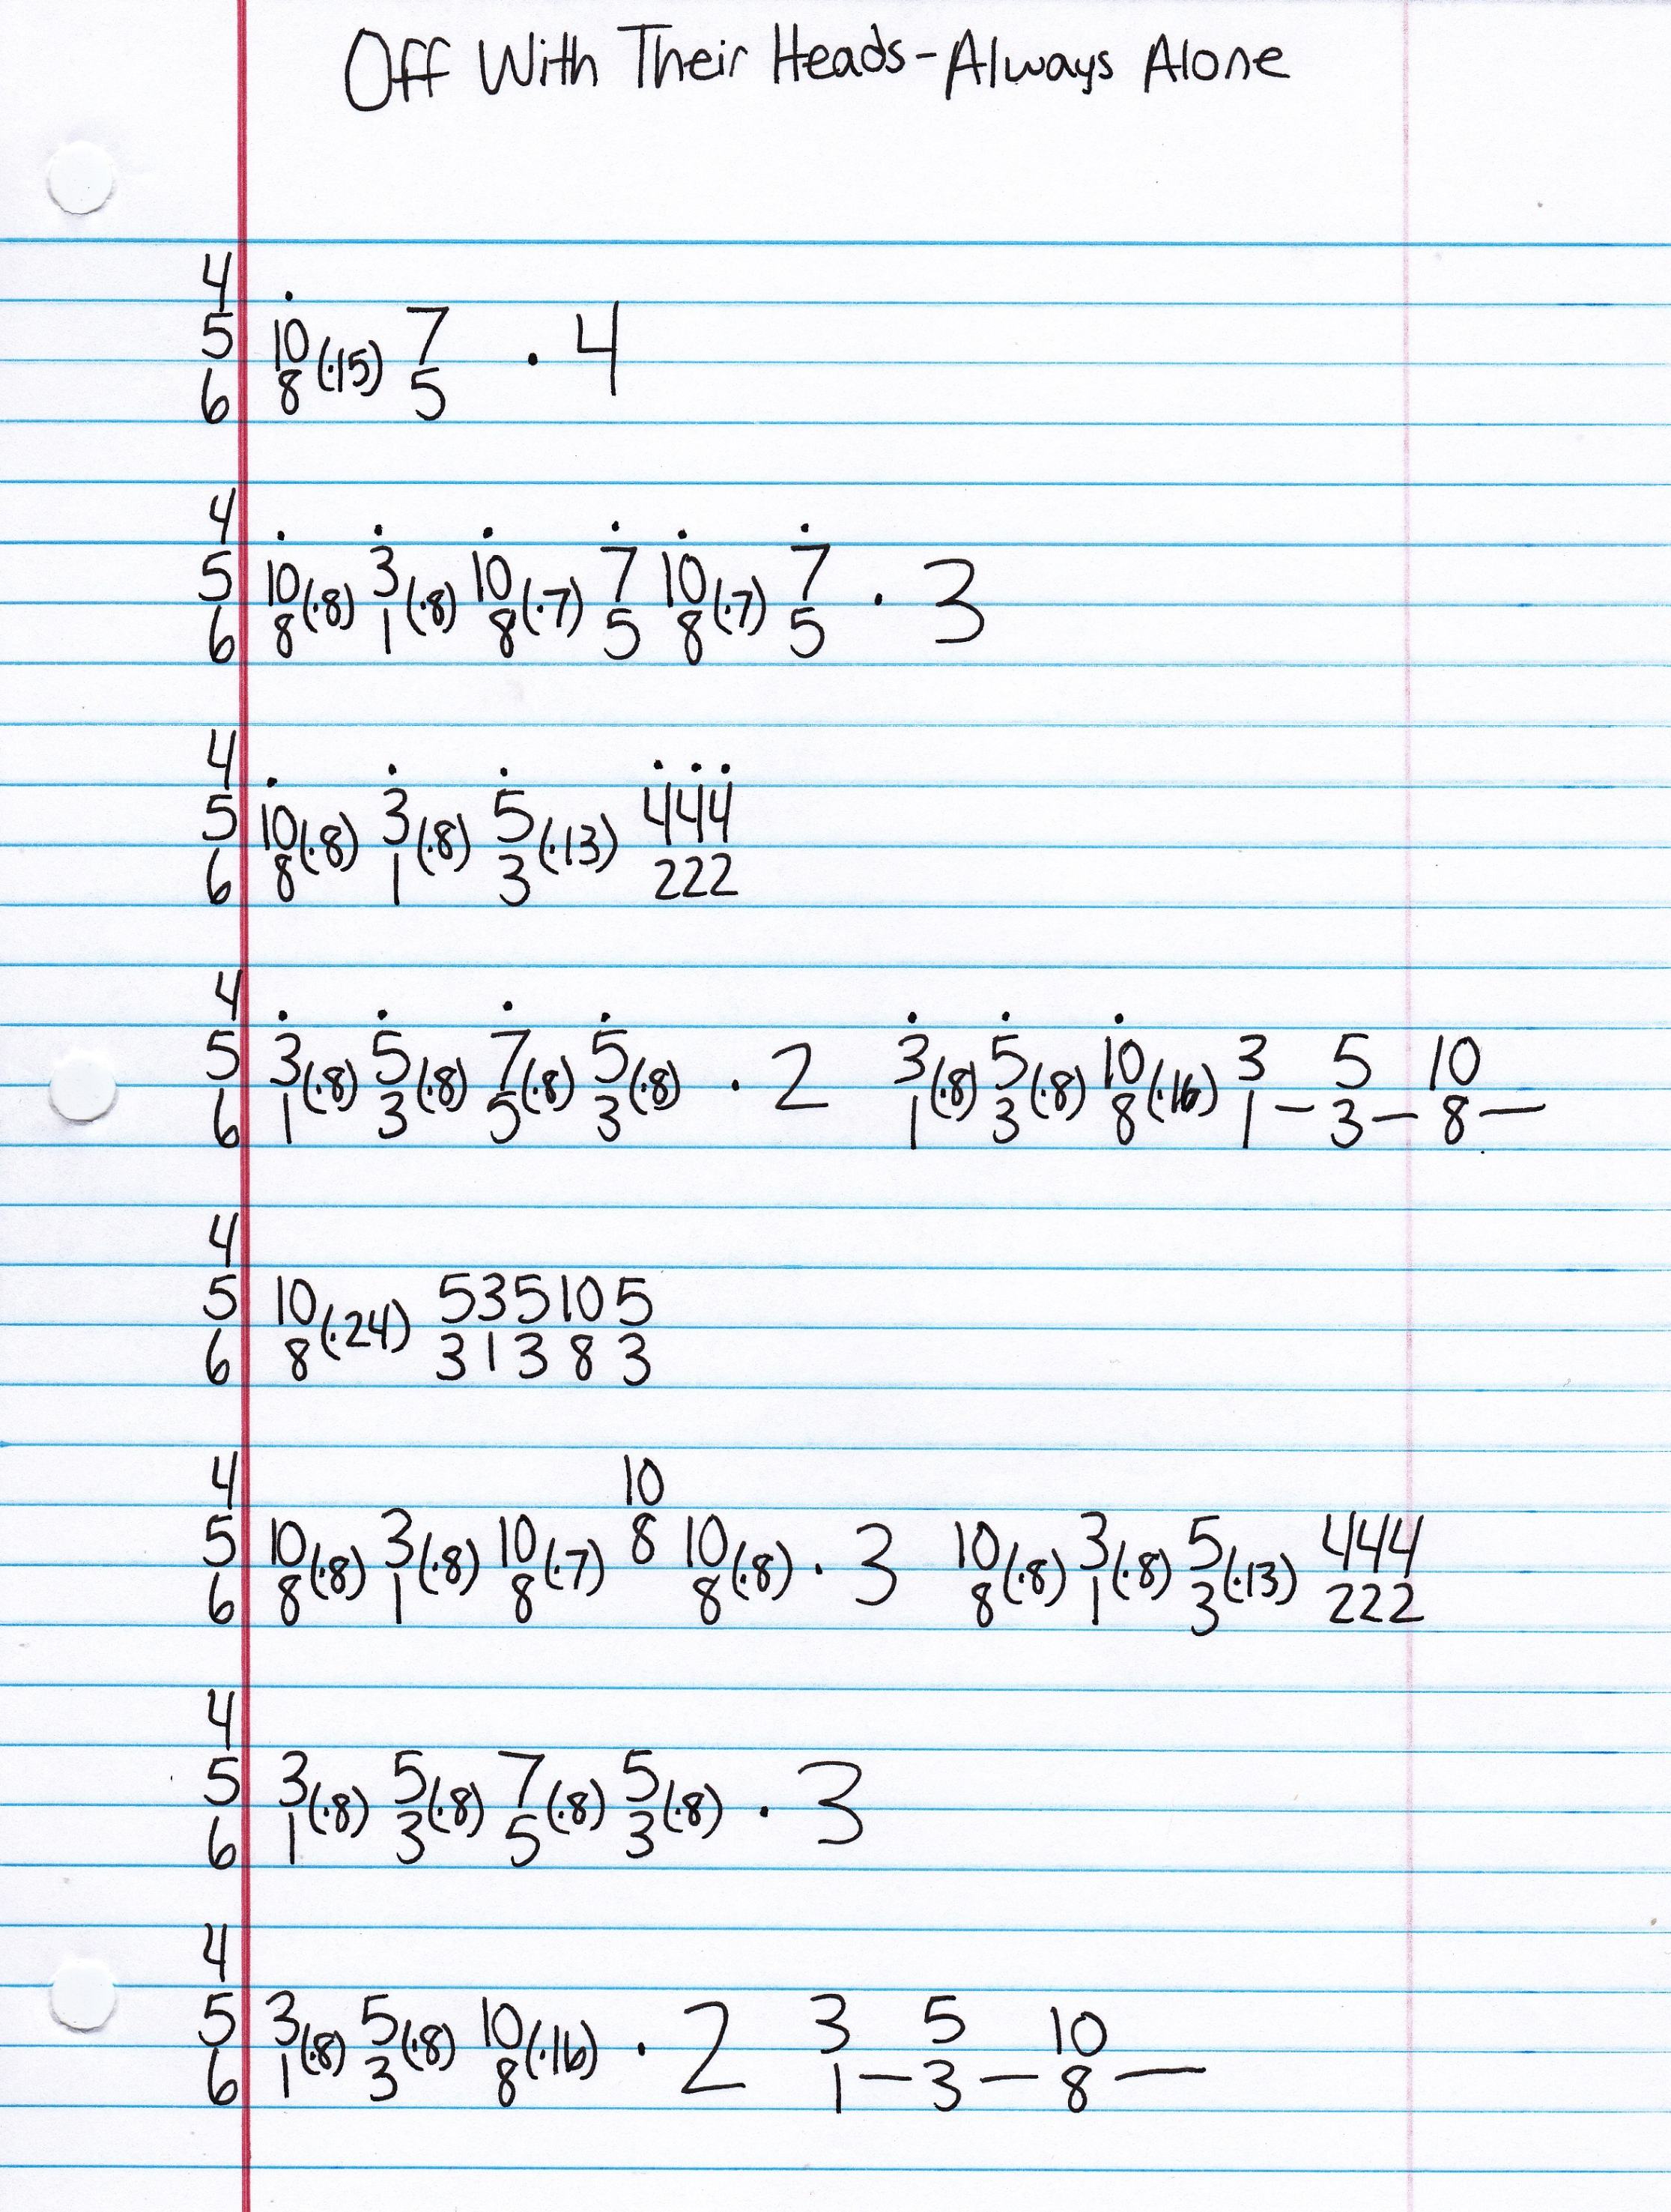 Off With Their Heads-Always Alone
4 .
5 10(·15) 7 · 4
6 8 5
4 . . . . . .
5 10(·8) 3(·8) 10(·7) 7 10(·7) 7 · 3
6 8 1 8 5 8 5
4 . . . . . .
5 10(·8) 3(·8) 5(·13) 444
6 8 1 3 222
4 . . . . . . .
5 3(·8) 5(·8) 7(·8) 5(·8) · 2 3(·8) 5(·8) 10(·16) 3 5 10
6 1 3 5 3 1 3 8 1 — 3 — 8 —
4
5 10(·24) 5 3 5 10 5
6 8 3 1 3 8 3
4 10
5 10(·8) 3(·8) 10(·7) 8 10(·8) · 3 10(·8) 3(·8) 5(·13) 444
6 8 1 8 8 8 1 3 222
4
5 3(·8) 5(·8) 7(·8) 5(·8) · 3
6 1 3 5 3
4
5 3(·8) 5(·8) 10(·16) · 2 3 5 10
6 1 3 8 1 — 3 — 8 —